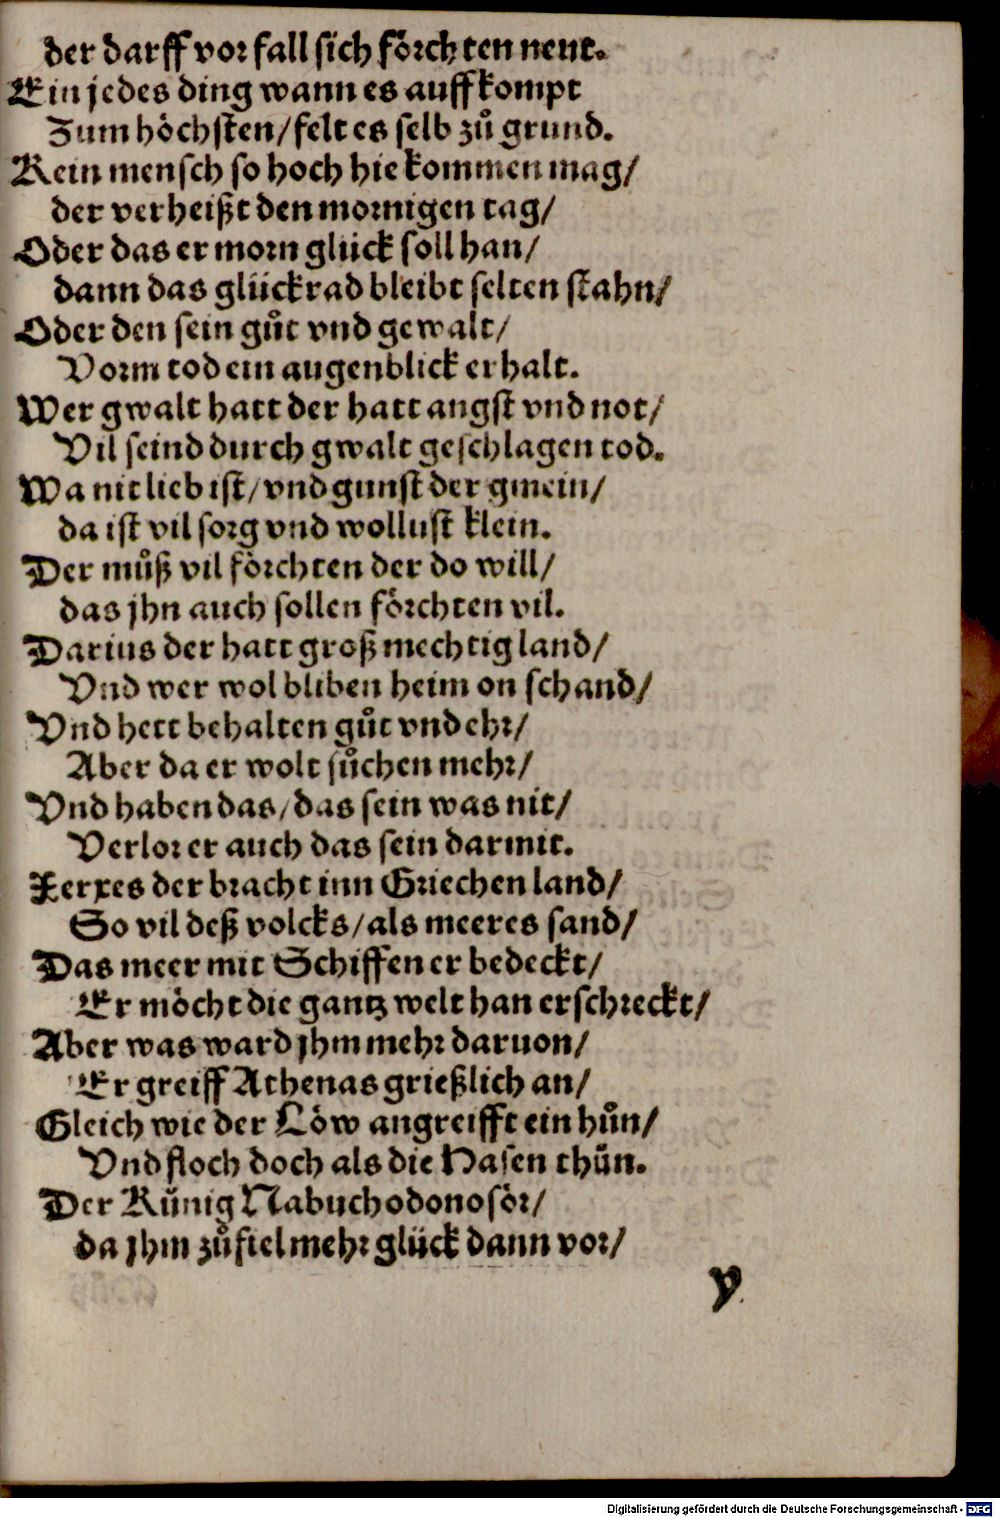 der darff vor fall sich förchten neut.
Ein jedes ding wann es auffkompt
Zum höchsten/felt es selb zů grund.
Kein mensch so hoch hie kommen mag/
der verheißt den mornigen tag/
Oder das er morn glück soll han/
dann das glückrad bleibt selten stahn/
Oder den sein gůt vnd gewalt/
Vorm tod ein augenblick erhalt.
Wer gwalt hatt der hatt angst vnd not/
Vil seind durch gwalt geschlagen tod.
Wa nit lieb ist/vnd gunst der gmein/
da ist vil sorg vnd wollust klein.
Der můß vil förchten der do will/
das jhn auch sollen förchten vil.
Darius der hatt groß mechtig land/
Vnd wer wol bliben heim on schand/
Vnd hett behalten gůt vnd ehr/
Aber da er wolt sůchen mehr/
Vnd haben das/das sein was nit/
Verlor er auch das sein darmit.
Xerxes der bracht inn Griechen land/
So vil deß volcks/als meeres sand/
Das meer mit Schiffen er bedeckt/
Er möcht die gantz welt han erschreckt/
Aber was ward jhm mehr daruon/
Er greiff Athenas grießlich an/
Gleich wie der Löw angreifft ein hůn/
Vnd floch doch als die Hasen thůn.
Der Künig Nabuchodonosör/
da jhm zůfiel mehr glück dann vor/
v
Digitalisierung gefördert durch die Deutsche Forschungsgemeinschaft - DFG